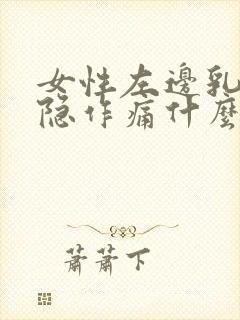 女性左邊乳
隐作痛什麼
蕭蕭下